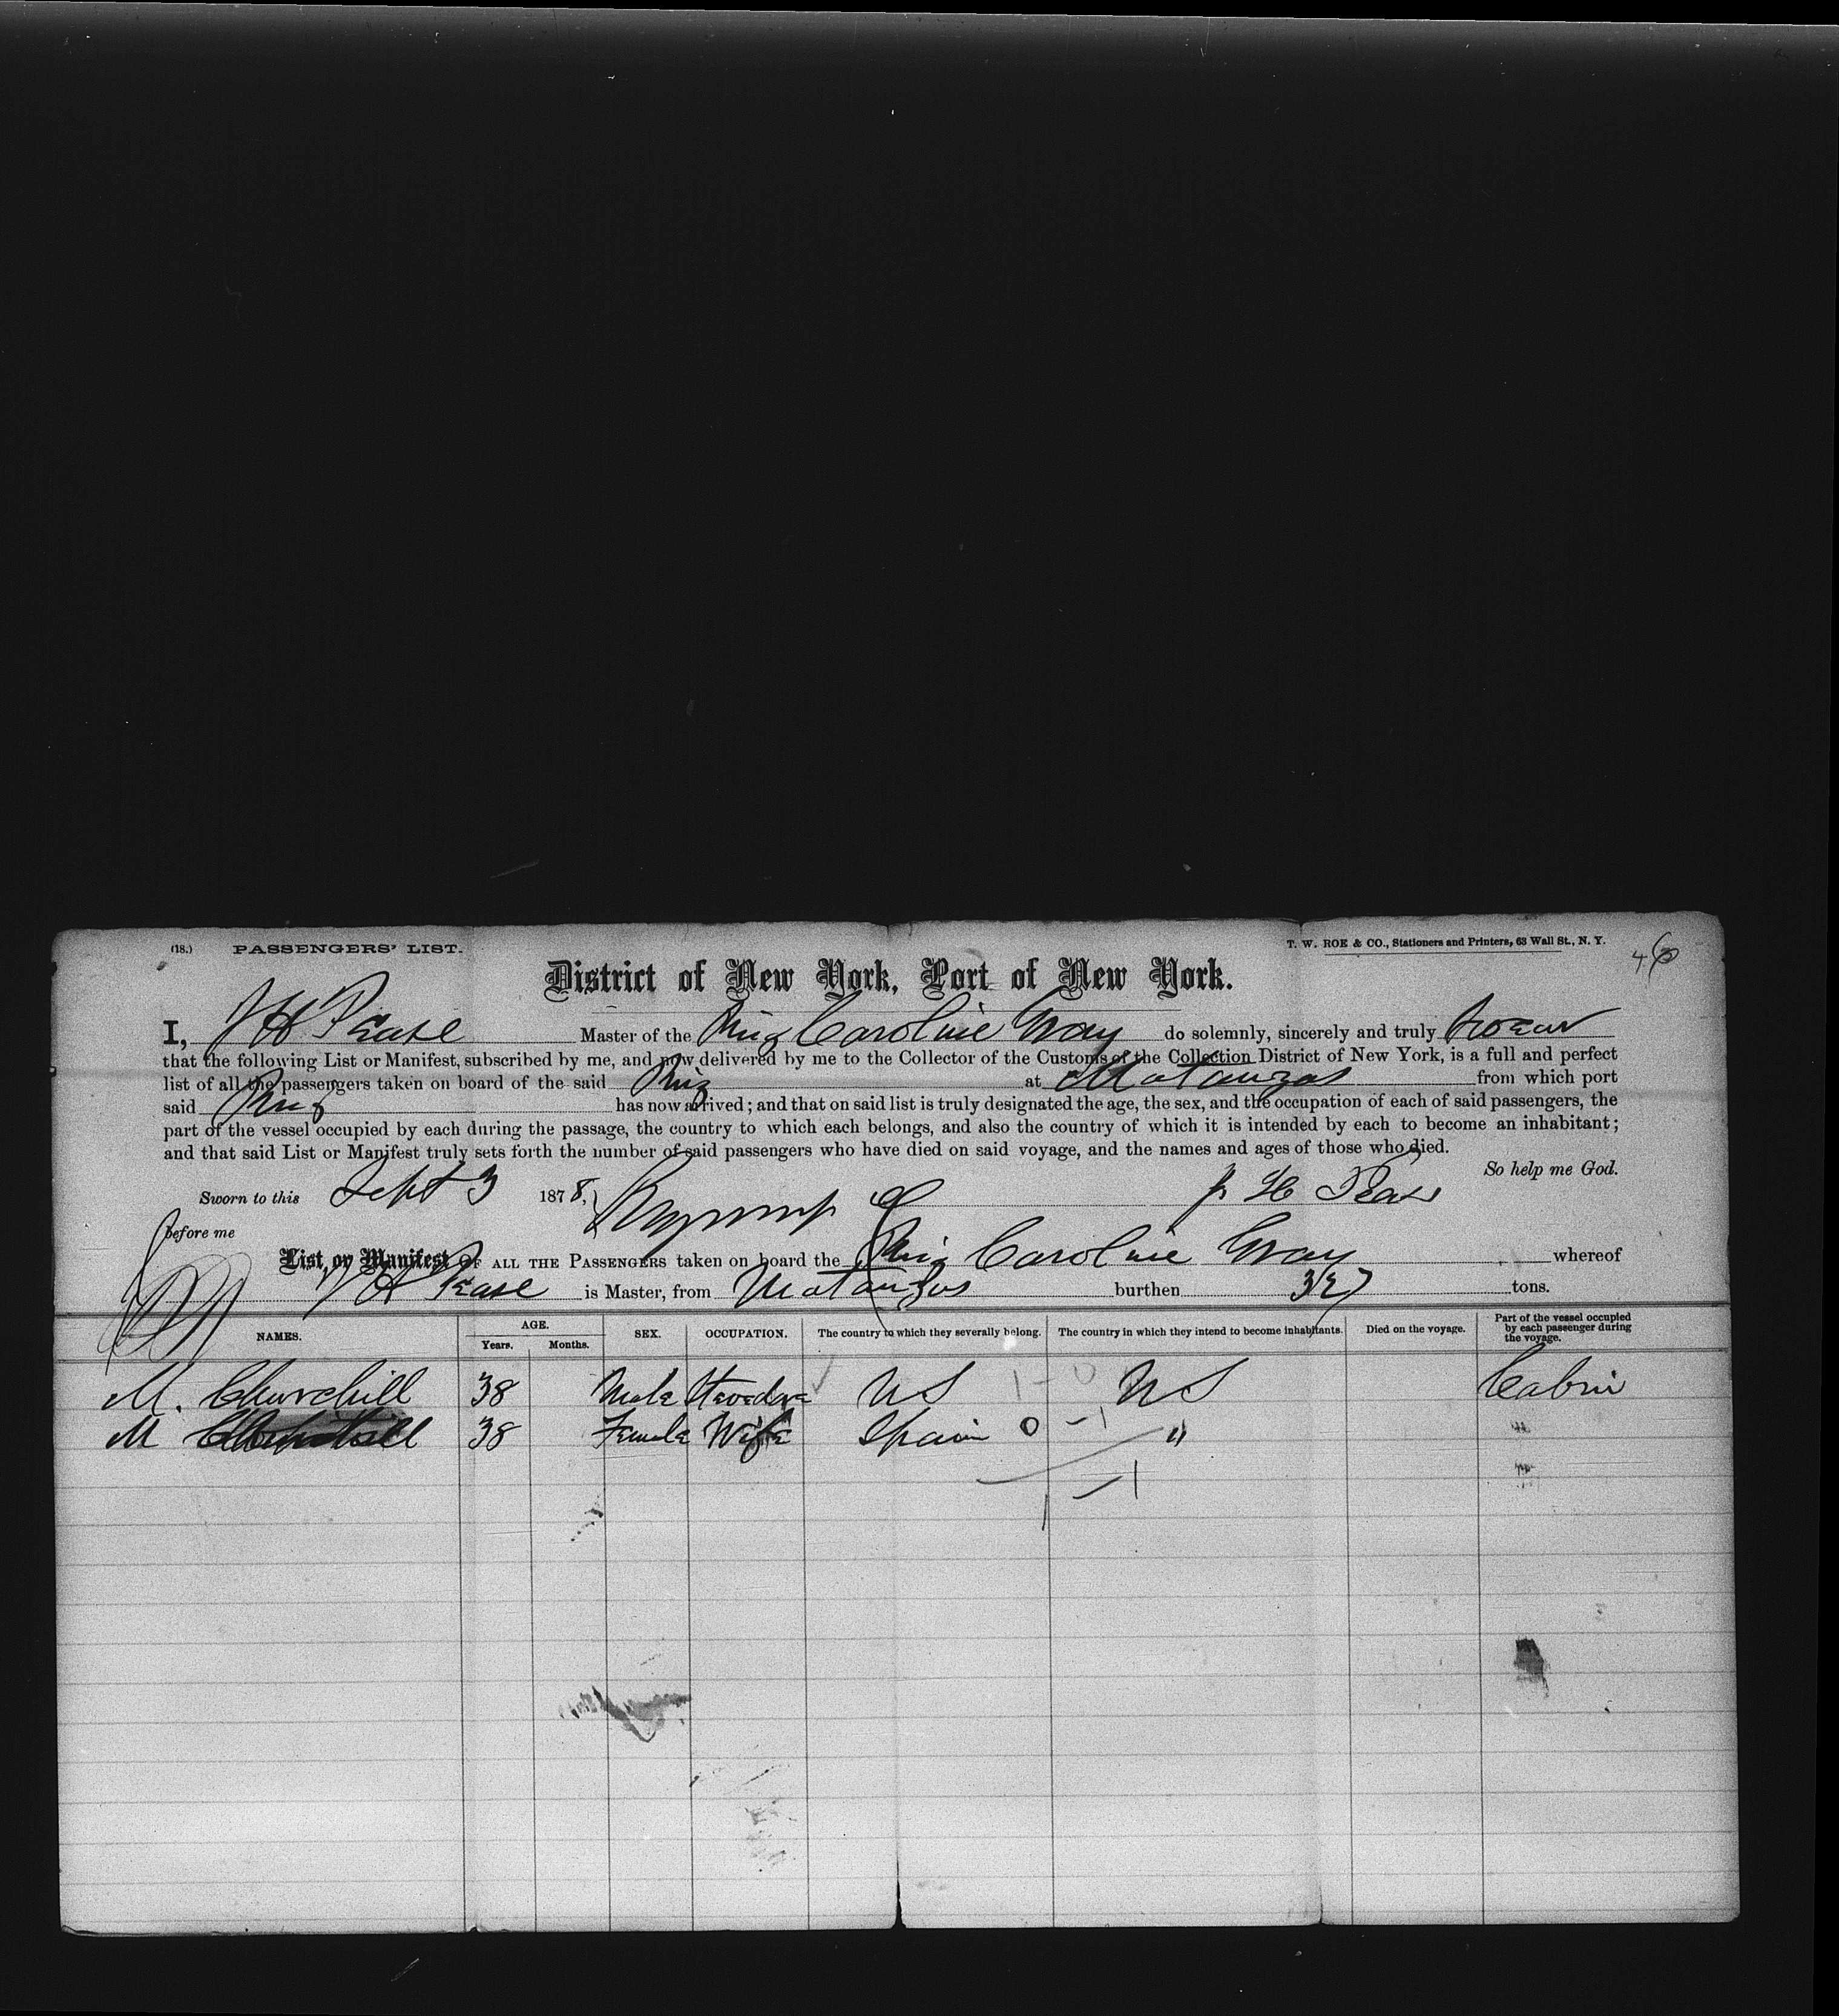 (18.) PASSENGERS' LIST. T. W. ROE & CO., Stationers and Printers, 63 Wall St., N. Y.
46
District of New York, Port of New York.
I, J H Pease Master of the Brig Caroline Gray do solemnly, sincerely and truly swear
that the following List or Manifest, subscribed by me, and now delivered by me to the Collector of the Customs of the Collection District of New York, is a full and perfect
list of all the passengers taken on board of the said Brig at Matanzas from which port
said Brig has now arrived; and that on said list is truly designated the age, the sex, and the occupation of each of said passengers, the
part of the vessel occupied by each during the passage, the country to which each belongs, and also the country of which it is intended by each to become an inhabitant;
and that said List or Manifest truly sets forth the number of said passengers who have died on said voyage, and the names and ages of those who died.
So help me God.
Sworn to this Sept 3 1878, J H Pease
before me
List or Manifest OF ALL THE PASSENGERS taken on board the Brig Caroline Gray whereof
J H Pease is Master, from Matanzas burthen 327 tons.
NAMES. AGE. Years. Months. SEX. OCCUPATION. The country to which they severally belong. The country in which they intend to become inhabitants. Died on the voyage. Part of the vessel occupied by each passenger during the voyage.
M. Churchill 38 Male Stevedore US 1-0 US Cabin
M Churchill 38 Female Wife Spain 0-1 " "
1 -1